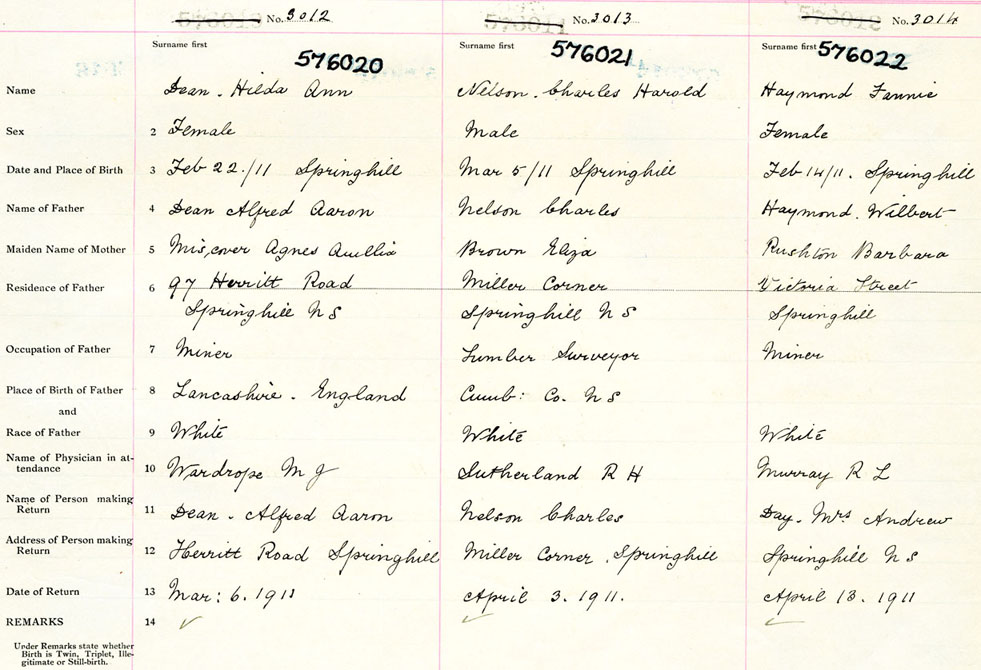 No. 3012 No. 3013 No. 3014
Surname first Surname first Surname first
576020 576021 576022
Name Dean. Hilda Ann Nelson. Charles Harold Haymond Fannie
Sex 2 Female Male Female
Date and Place of Birth 3 Feb 22./11 Springhill Mar 5/11 Springhill Feb 14/11. Springhill
Name of Father 4 Dean Alfred Aaron Nelson Charles Haymond. Wilbert
Maiden Name of Mother 5 Agnes Brown Eliza Rushton Barbara
Residence of Father 6 97 Herritt Road Miller Corner Victoria Street
Springhill N S Springhill N S Springhill
Occupation of Father 7 Miner Lumber Surveyor Miner
Place of Birth of Father 8 Lancashire. England Cumb: Co. N S
and
Race of Father 9 White White White
Name of Physician in at-
tendance 10 Wardrope M J Sutherland R H Murray R L
Name of Person making
Return 11 Dean. Alfred Aaron Nelson Charles Day. Mrs Andrew
Address of Person making
Return 12 Herritt Road Springhill Miller Corner. Springhill Springhill N S
Date of Return 13 Mar: 6. 1911 April 3. 1911. April 13. 1911
REMARKS 14
Under Remarks state whether
Birth is Twin, Triplet, Ille-
gitimate or Still-birth.